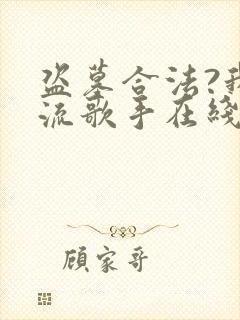 盗墓合法?我
流歌手在线
顾家哥